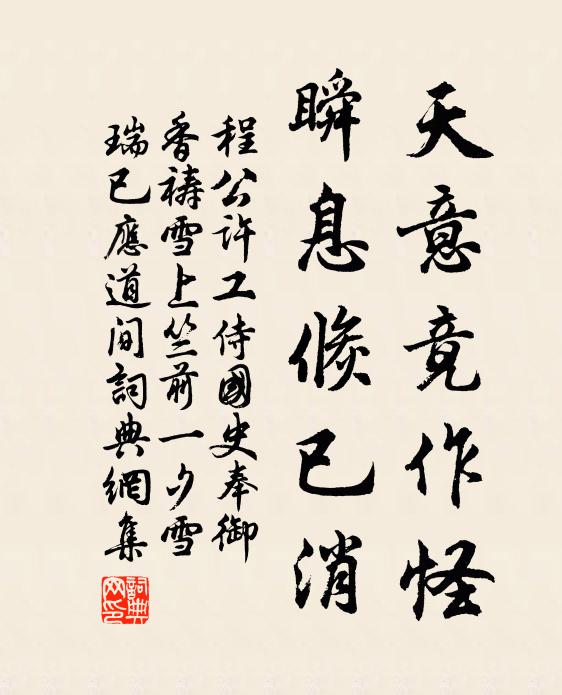 天意竟作怪
瞬息倏已消
程公許工侍國史奉御
香禱雪上竺前一夕雪
瑞已應道间詞典網集
詞典网印